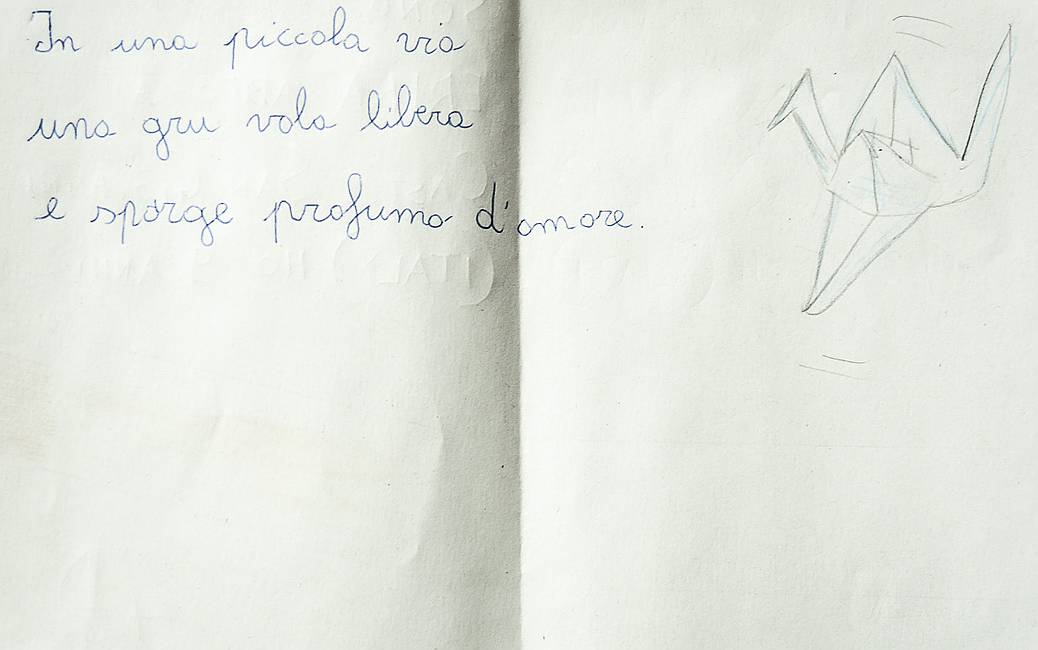 In una piccola via
una gru vola libera
e sparge profumo d'amore.